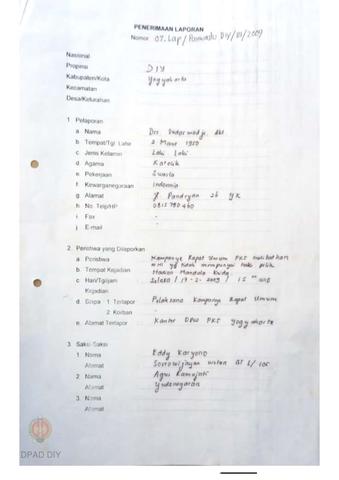 PENERIMAAN LAPORAN
Nomor 07.Lap/Panwaslu DIY/III/2009
Nasional
Propinsi DIY
Kabupaten/Kota Yogyakarta
Kecamatan
Desa/Kelurahan
1 Pelaporan
a Nama Drs.
b Tempat/Tgl Lahir 2 Maret 1950
c Jenis Kelamin Laki Laki
d Agama Katolik
e Pekerjaan Swasta
f Kewarganegaraan Indonesia
g Alamat Jl Pandeyan 26 YK
h No. Telp/HP 0815 790 460
i Fax -
j E-mail -
2. Peristiwa yang Dilaporkan
a Peristiwa Kampanye Rapat Umum PKS melibatkan
yg tidak mempunyai hak pilih
b Tempat Kejadian Stadion Mandala Krida
c Hari/Tgl/jam Selasa / 15 WIB
Kejadian
d Siapa 1 Terlapor Pelaksana Kampanye Rapat Umum
2 Korban -
e Alamat Terlapor Kantor DPW PKS Yogyakarta
3. Saksi-Saksi
1. Nama Eddy Karyono
Alamat Sosrowijayan wetan GT I/
2. Nama Agus
Alamat Yudonegaran
3. Nama
Alamat
DPAD DIY